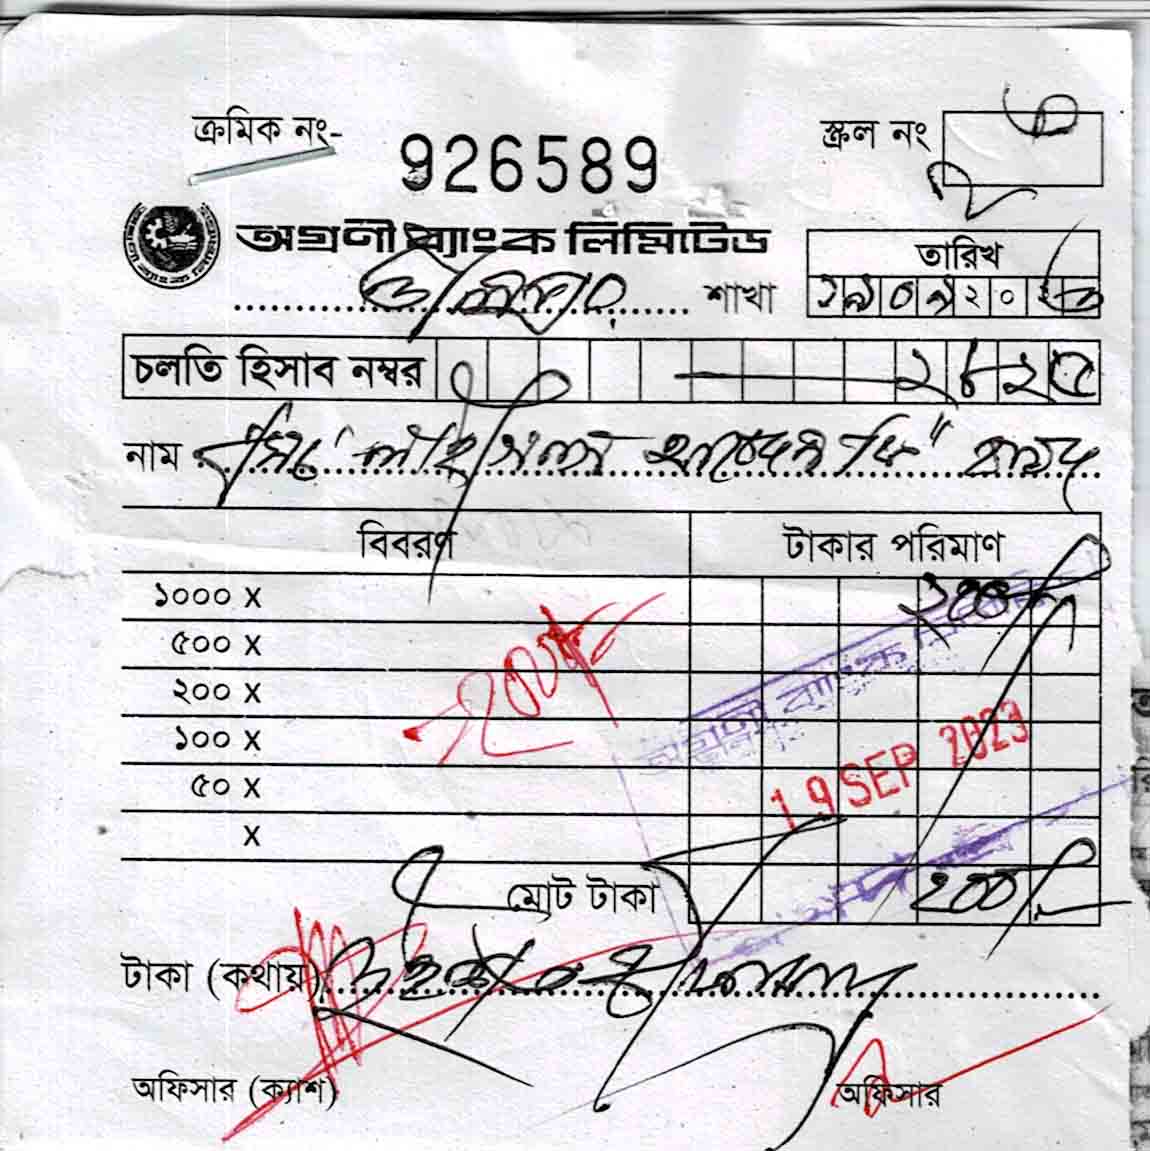 ক্রমিক নং- 926589 স্ক্রল নং
অগ্রণী ব্যাংক লিমিটেড
তারিখ
শাখা ১৯০৯২০২৩
চলতি হিসাব নম্বর
নাম
বিবরণ টাকার পরিমাণ
১০০০ X ২০০/-
৫০০ X
২০০ X
১০০ X
৫০ X
X
200/-
অগ্রণী ব্যাংক
19 SEP 2023
মোট টাকা ২০০/-
টাকা (কথায়) দুইশত
অফিসার (ক্যাশ) অফিসার